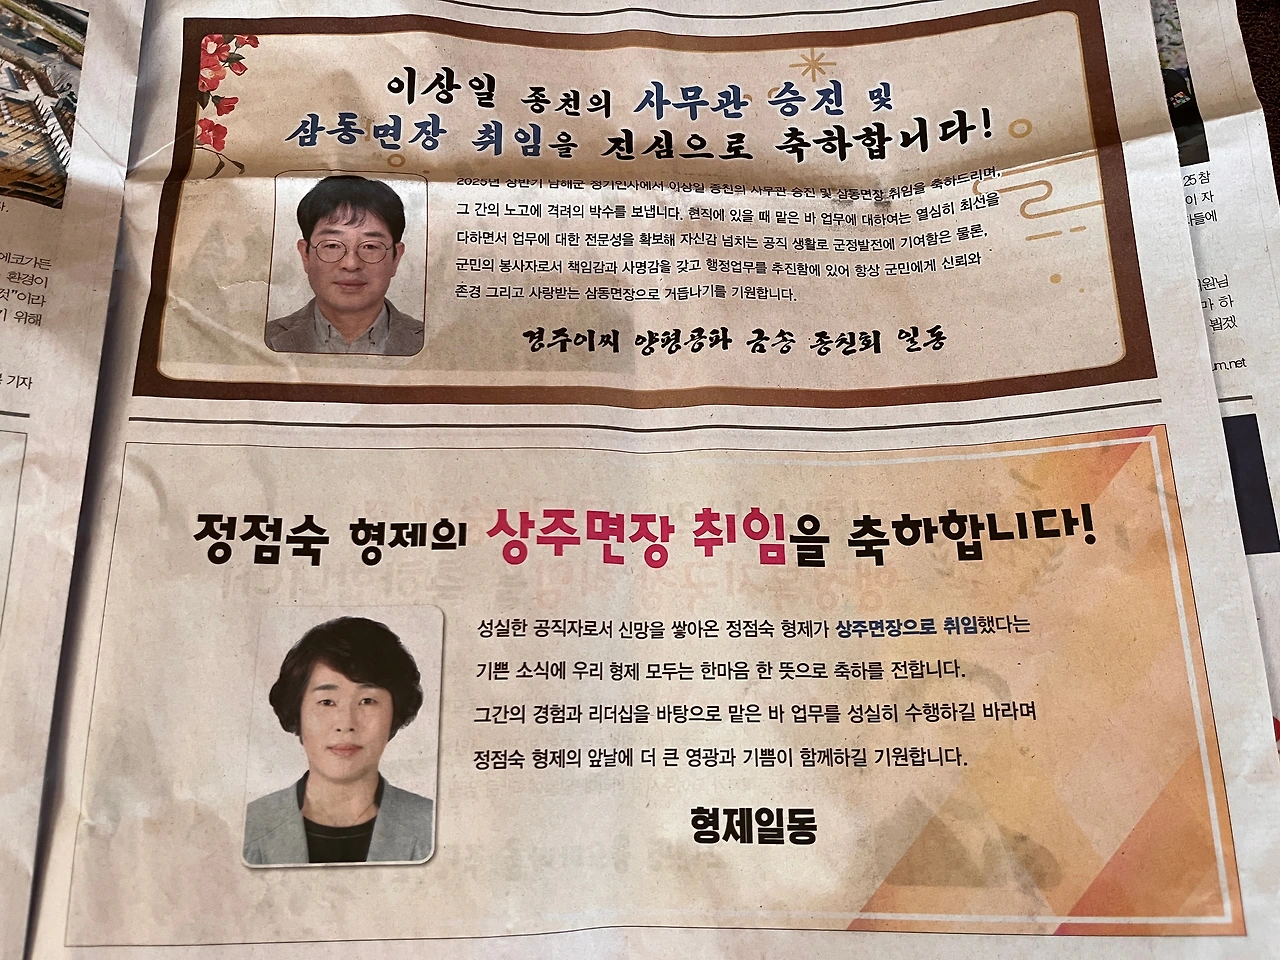 이상일 종친의 사무관 승진 및
삼동면장 취임을 진심으로 축하합니다!
2025년 상반기 남해군 정기인사에서 이상일 종친의 사무관 승진 및 삼동면장 취임을 축하드리며,
그 간의 노고에 격려의 박수를 보냅니다. 현직에 있을 때 맡은 바 업무에 대하여는 열심히 최선을
다하면서 업무에 대한 전문성을 확보해 자신감 넘치는 공직 생활로 군정발전에 기여함은 물론,
군민의 봉사자로서 책임감과 사명감을 갖고 행정업무를 추진함에 있어 항상 군민에게 신뢰와
존경 그리고 사랑받는 삼동면장으로 거듭나기를 기원합니다.
경주이씨 양평공파 금송 종친회 일동
정점숙 형제의 상주면장 취임을 축하합니다!
성실한 공직자로서 신망을 쌓아온 정점숙 형제가 상주면장으로 취임했다는
기쁜 소식에 우리 형제 모두는 한마음 한 뜻으로 축하를 전합니다.
그간의 경험과 리더십을 바탕으로 맡은 바 업무를 성실히 수행하길 바라며
정점숙 형제의 앞날에 더 큰 영광과 기쁨이 함께하길 기원합니다.
형제일동
에코가든
환경이
것"이라
위해
기자
25 참
이 자
들에
원님
마 하
뵙겠
um.net